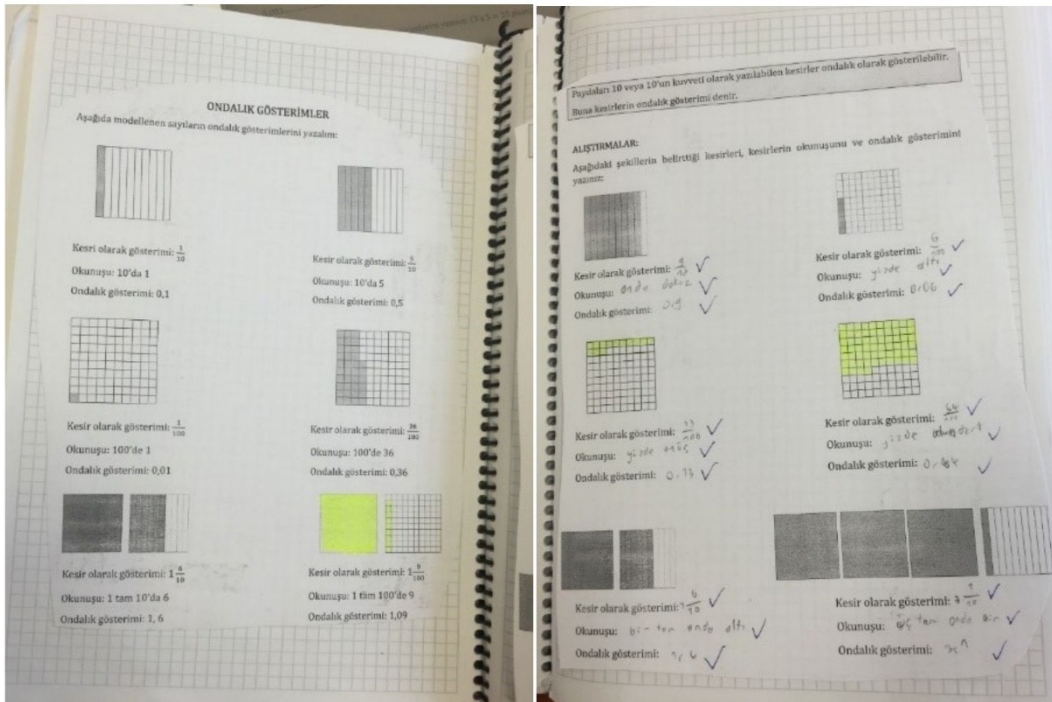 ONDALIK GÖSTERİMLER
Aşağıda modellenen sayıların ondalık gösterimlerini yazalım:
Kesri olarak gösterimi: 1/10
Okunuşu: 10'da 1
Ondalık gösterimi: 0,1
Kesir olarak gösterimi: 5/10
Okunuşu: 10'da 5
Ondalık gösterimi: 0,5
Kesir olarak gösterimi: 1/100
Okunuşu: 100'de 1
Ondalık gösterimi: 0,01
Kesir olarak gösterimi: 36/100
Okunuşu: 100'de 36
Ondalık gösterimi: 0,36
Kesir olarak gösterimi: 1 6/10
Okunuşu: 1 tam 10'da 6
Ondalık gösterimi: 1, 6
Kesir olarak gösterimi: 1 9/100
Okunuşu: 1 tam 100'de 9
Ondalık gösterimi: 1,09
Paydaları 10 veya 10'un kuvveti olarak yazılabilen kesirler ondalık olarak gösterilebilir.
Buna kesirlerin ondalık gösterimi denir.
ALIŞTIRMALAR:
Aşağıdaki şekillerin belirttiği kesirleri, kesirlerin okunuşunu ve ondalık gösterimini
yazınız:
Kesir olarak gösterimi: 9/10
Okunuşu: onda
Ondalık gösterimi: 0,9
Kesir olarak gösterimi: 6/100
Okunuşu: yüzde altı
Ondalık gösterimi: 0,06
Kesir olarak gösterimi: 13/100
Okunuşu: yüzde onüç
Ondalık gösterimi: 0,13
Kesir olarak gösterimi: 64/100
Okunuşu: yüzde
Ondalık gösterimi:
Kesir olarak gösterimi: 1 6/10
Okunuşu: bir tam onda altı
Ondalık gösterimi: 1,6
Kesir olarak gösterimi: 3 1/10
Okunuşu: üç tam onda bir
Ondalık gösterimi: